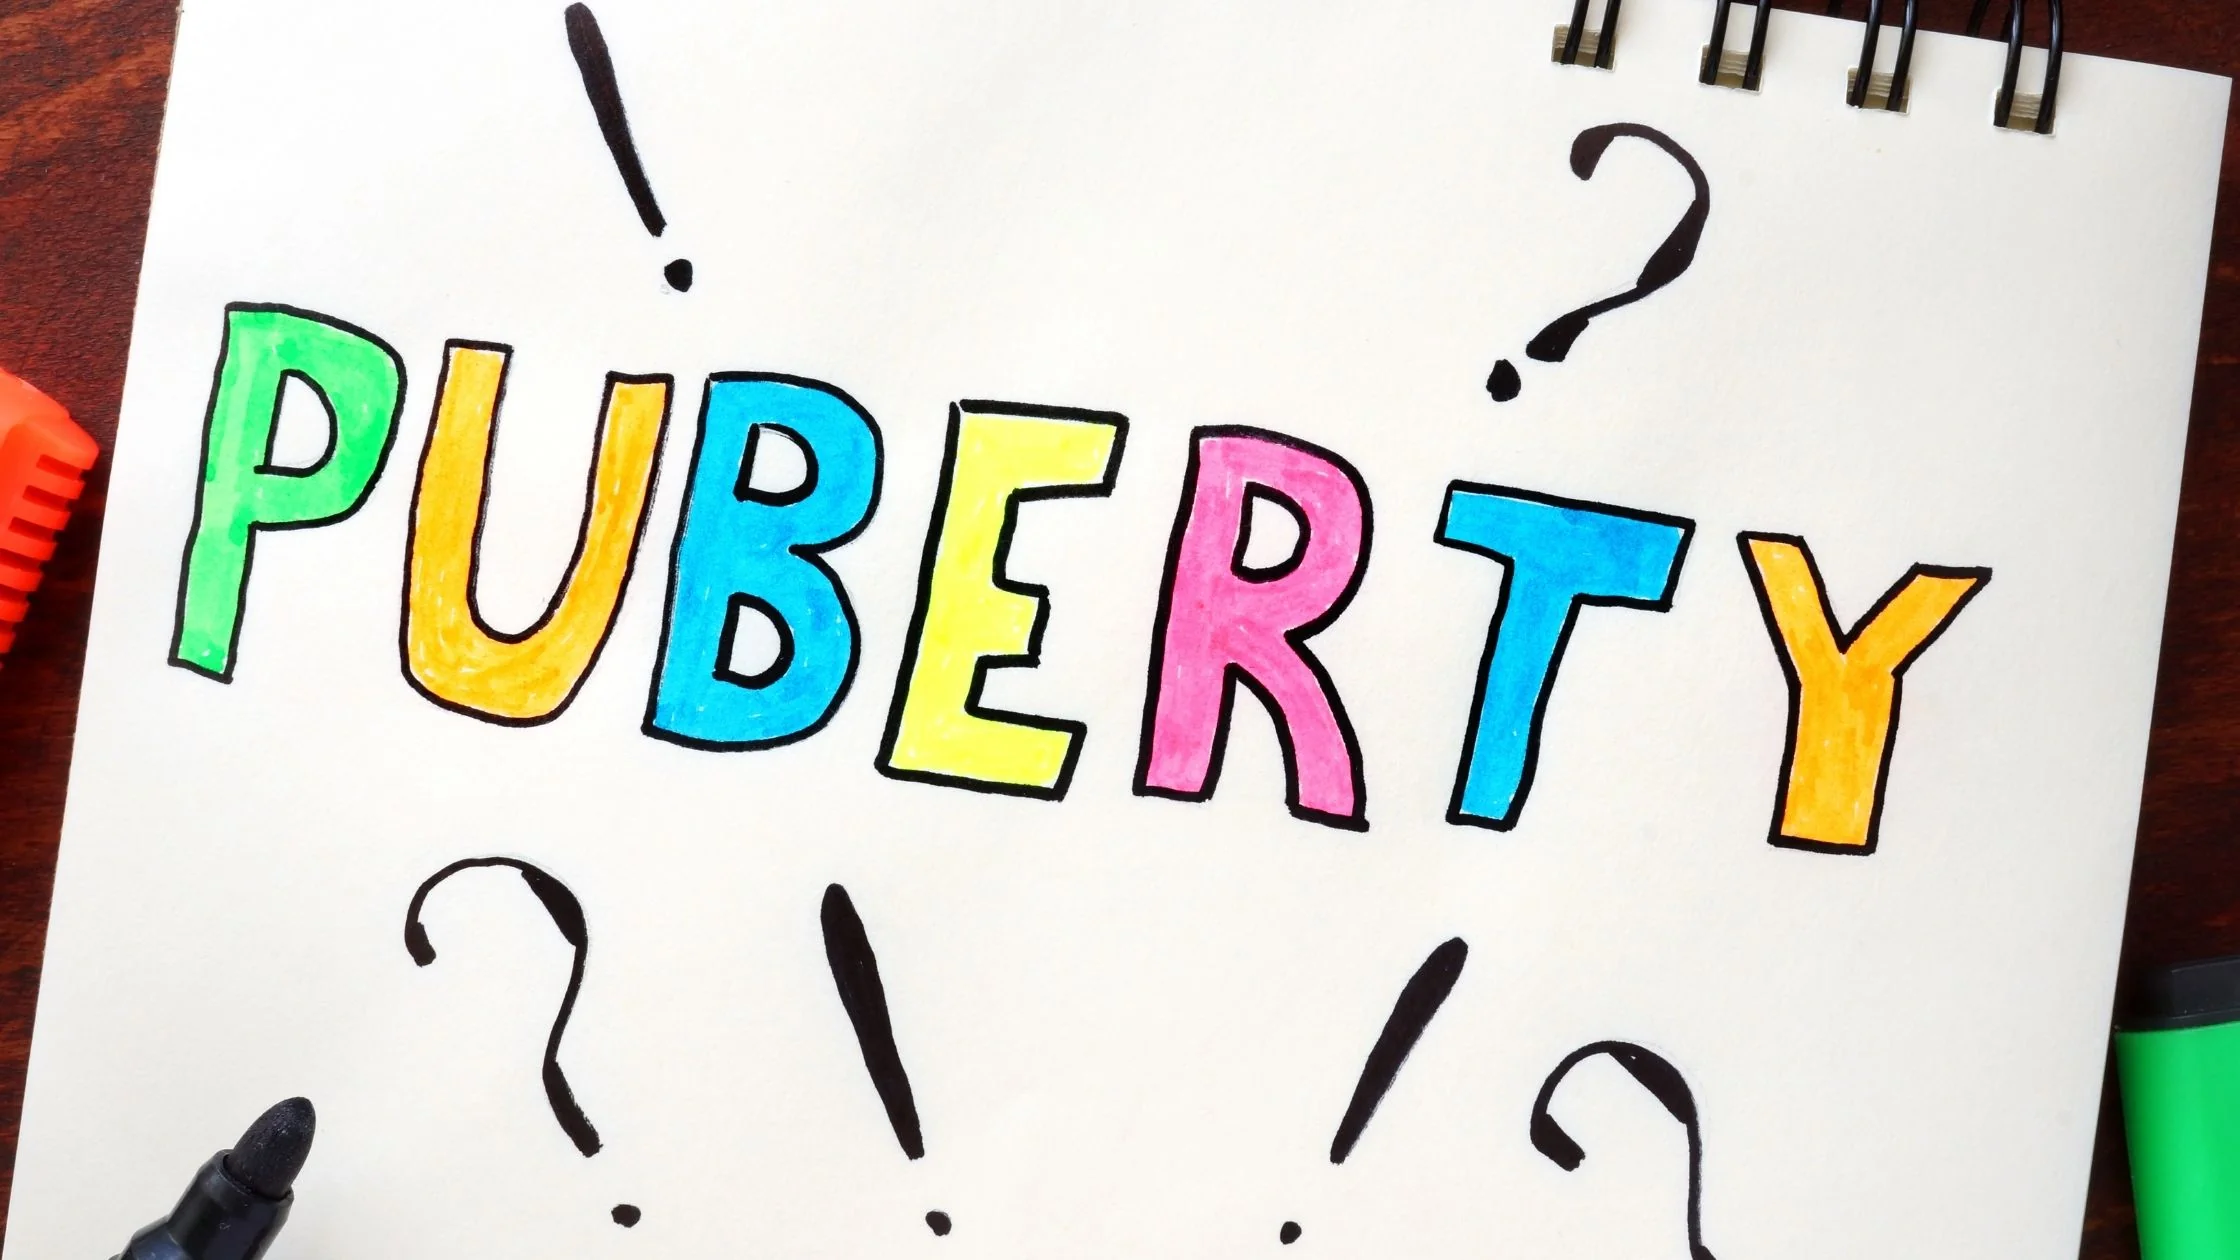 !
?
PUBERTY
? ! ! ?